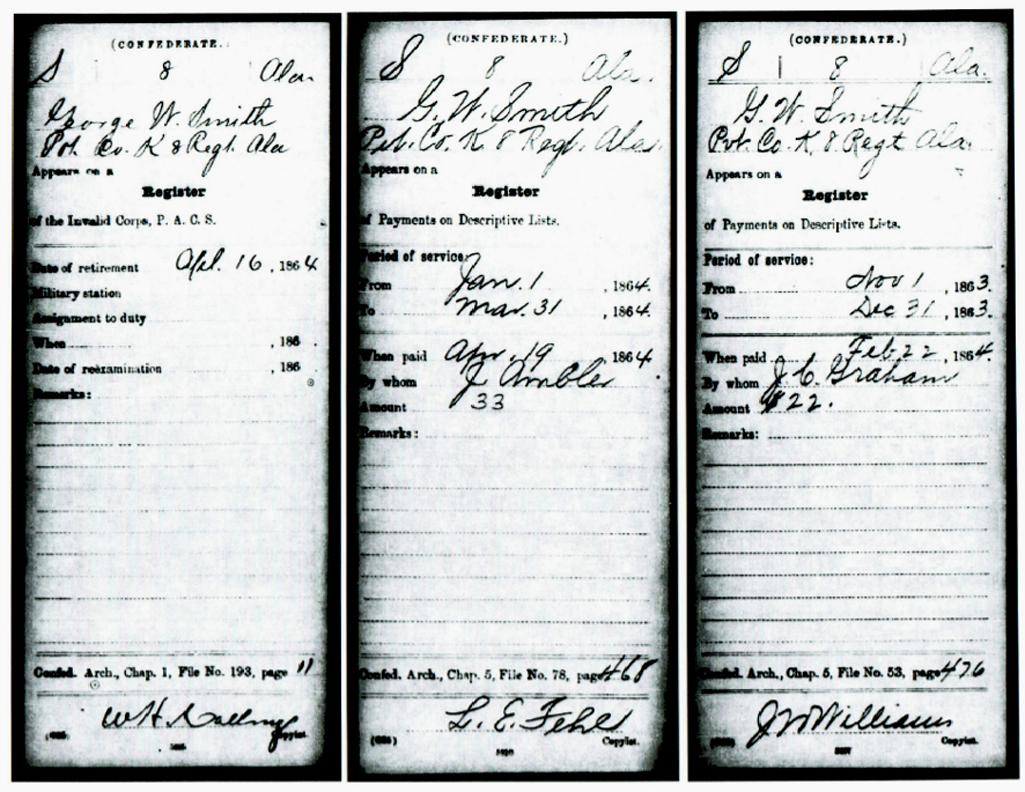 (CONFEDERATE.)
S | 8 | Ala.
George W. Smith
Pvt. Co. K 8 Regt. Ala
Appears on a
Register
of the Invalid Corps, P. A. C. S.
Date of retirement Apl. 16, 1864
Military station
Assignment to duty
When , 186 .
Date of reëxamination , 186
Remarks:
Confed. Arch., Chap. 1, File No. 193, page 11
W H
Copyist.
(CONFEDERATE.)
S 8 Ala.
G. W. Smith
Pvt. Co. K. 8 Regt. Ala.
Appears on a
Register
of Payments on Descriptive Lists.
Period of service:
From Jan. 1 , 1864.
To Mar. 31 , 1864.
When paid Apr. 19 , 1864
By whom J Ambler
Amount 33
Remarks:
Confed. Arch., Chap. 5, File No. 78, page 468
L. E. Fehr
Copyist.
(CONFEDERATE.)
S | 8 | Ala.
G. W. Smith
Pvt. Co. K, 8 Regt Ala.
Appears on a
Register
of Payments on Descriptive Lists.
Period of service:
From Nov 1 , 1863.
To Dec 31 , 1863.
When paid Feb 22 , 1864.
By whom J. C. Graham
Amount $22.
Remarks:
Confed. Arch., Chap. 5, File No. 53, page 476
J W Williams
Copyist.